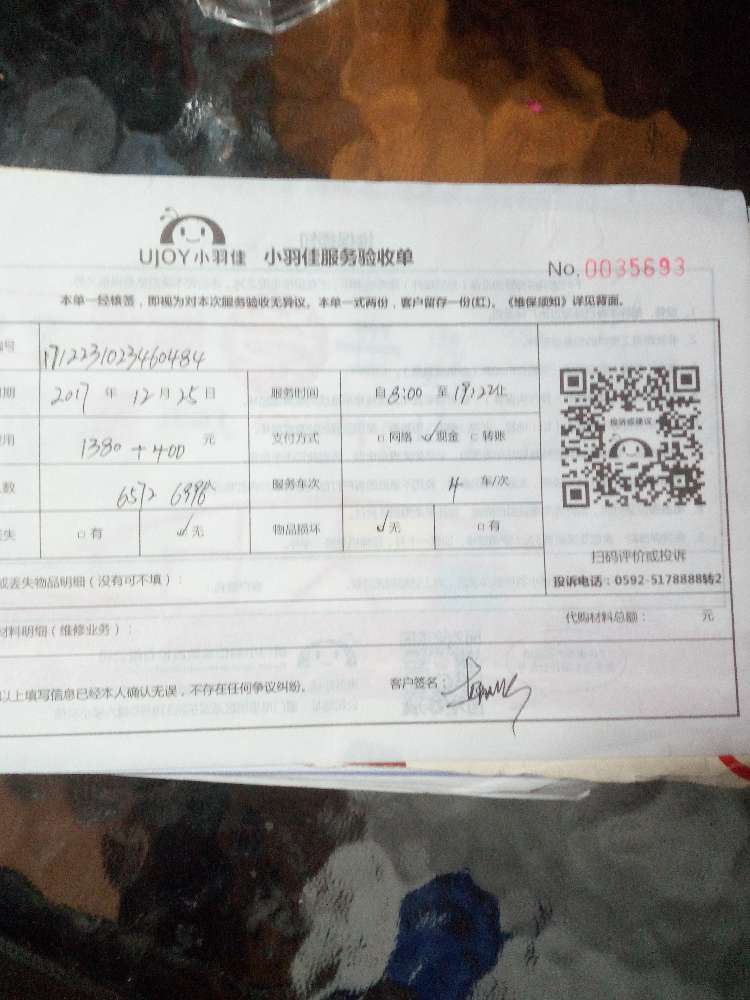 UJOY小羽佳 小羽佳服务验收单
No.0035693
本单一经核签，即视为对本次服务验收无异议。本单一式两份，客户留存一份(红)。《维保须知》详见背面。
号 1712231023460484
期 2017 年 12 月 25 日 服务时间 自 8:00 至 19:22止
用 1380+400 元 支付方式 □网络 ✓现金 □转账
数 6572 6996 服务车次 4 车/次
失 □有 ✓无 物品损坏 ✓无 □有
投诉或建议
扫码评价或投诉
投诉电话：0592-5178888转2
或丢失物品明细（没有可不填）：
代购材料总额： 元
材料明细（维修业务）：
以上填写信息已经本人确认无误，不存在任何争议纠纷。 客户签名：